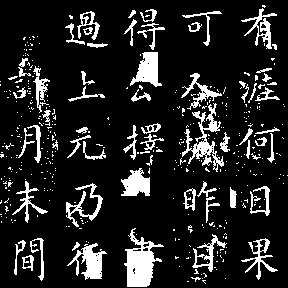 有涯何日果
可入城昨日
得公擇書
過上元乃行
計月末間